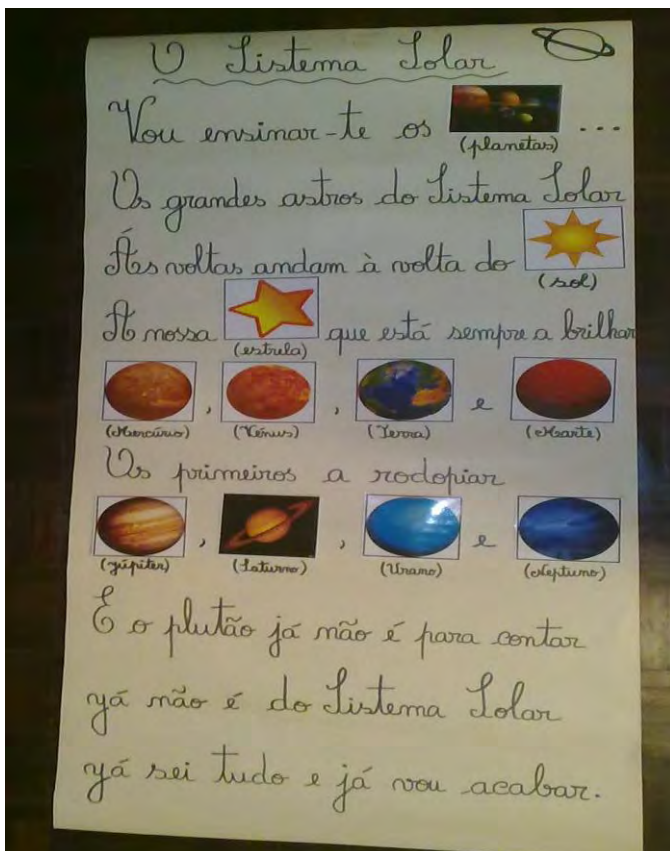 O Sistema Solar
Vou ensinar-te os ...
(planetas)
Os grandes astros do Sistema Solar
Ás voltas andam à volta do
(sol)
A nossa que está sempre a brilhar
(estrela)
, , e
(Mercúrio) (Vénus) (Terra) (Marte)
Os primeiros a rodopiar
, , e
(Júpiter) (Saturno) (Urano) (Neptuno)
E o plutão já não é para contar
Já não é do Sistema Solar
Já sei tudo e já vou acabar.